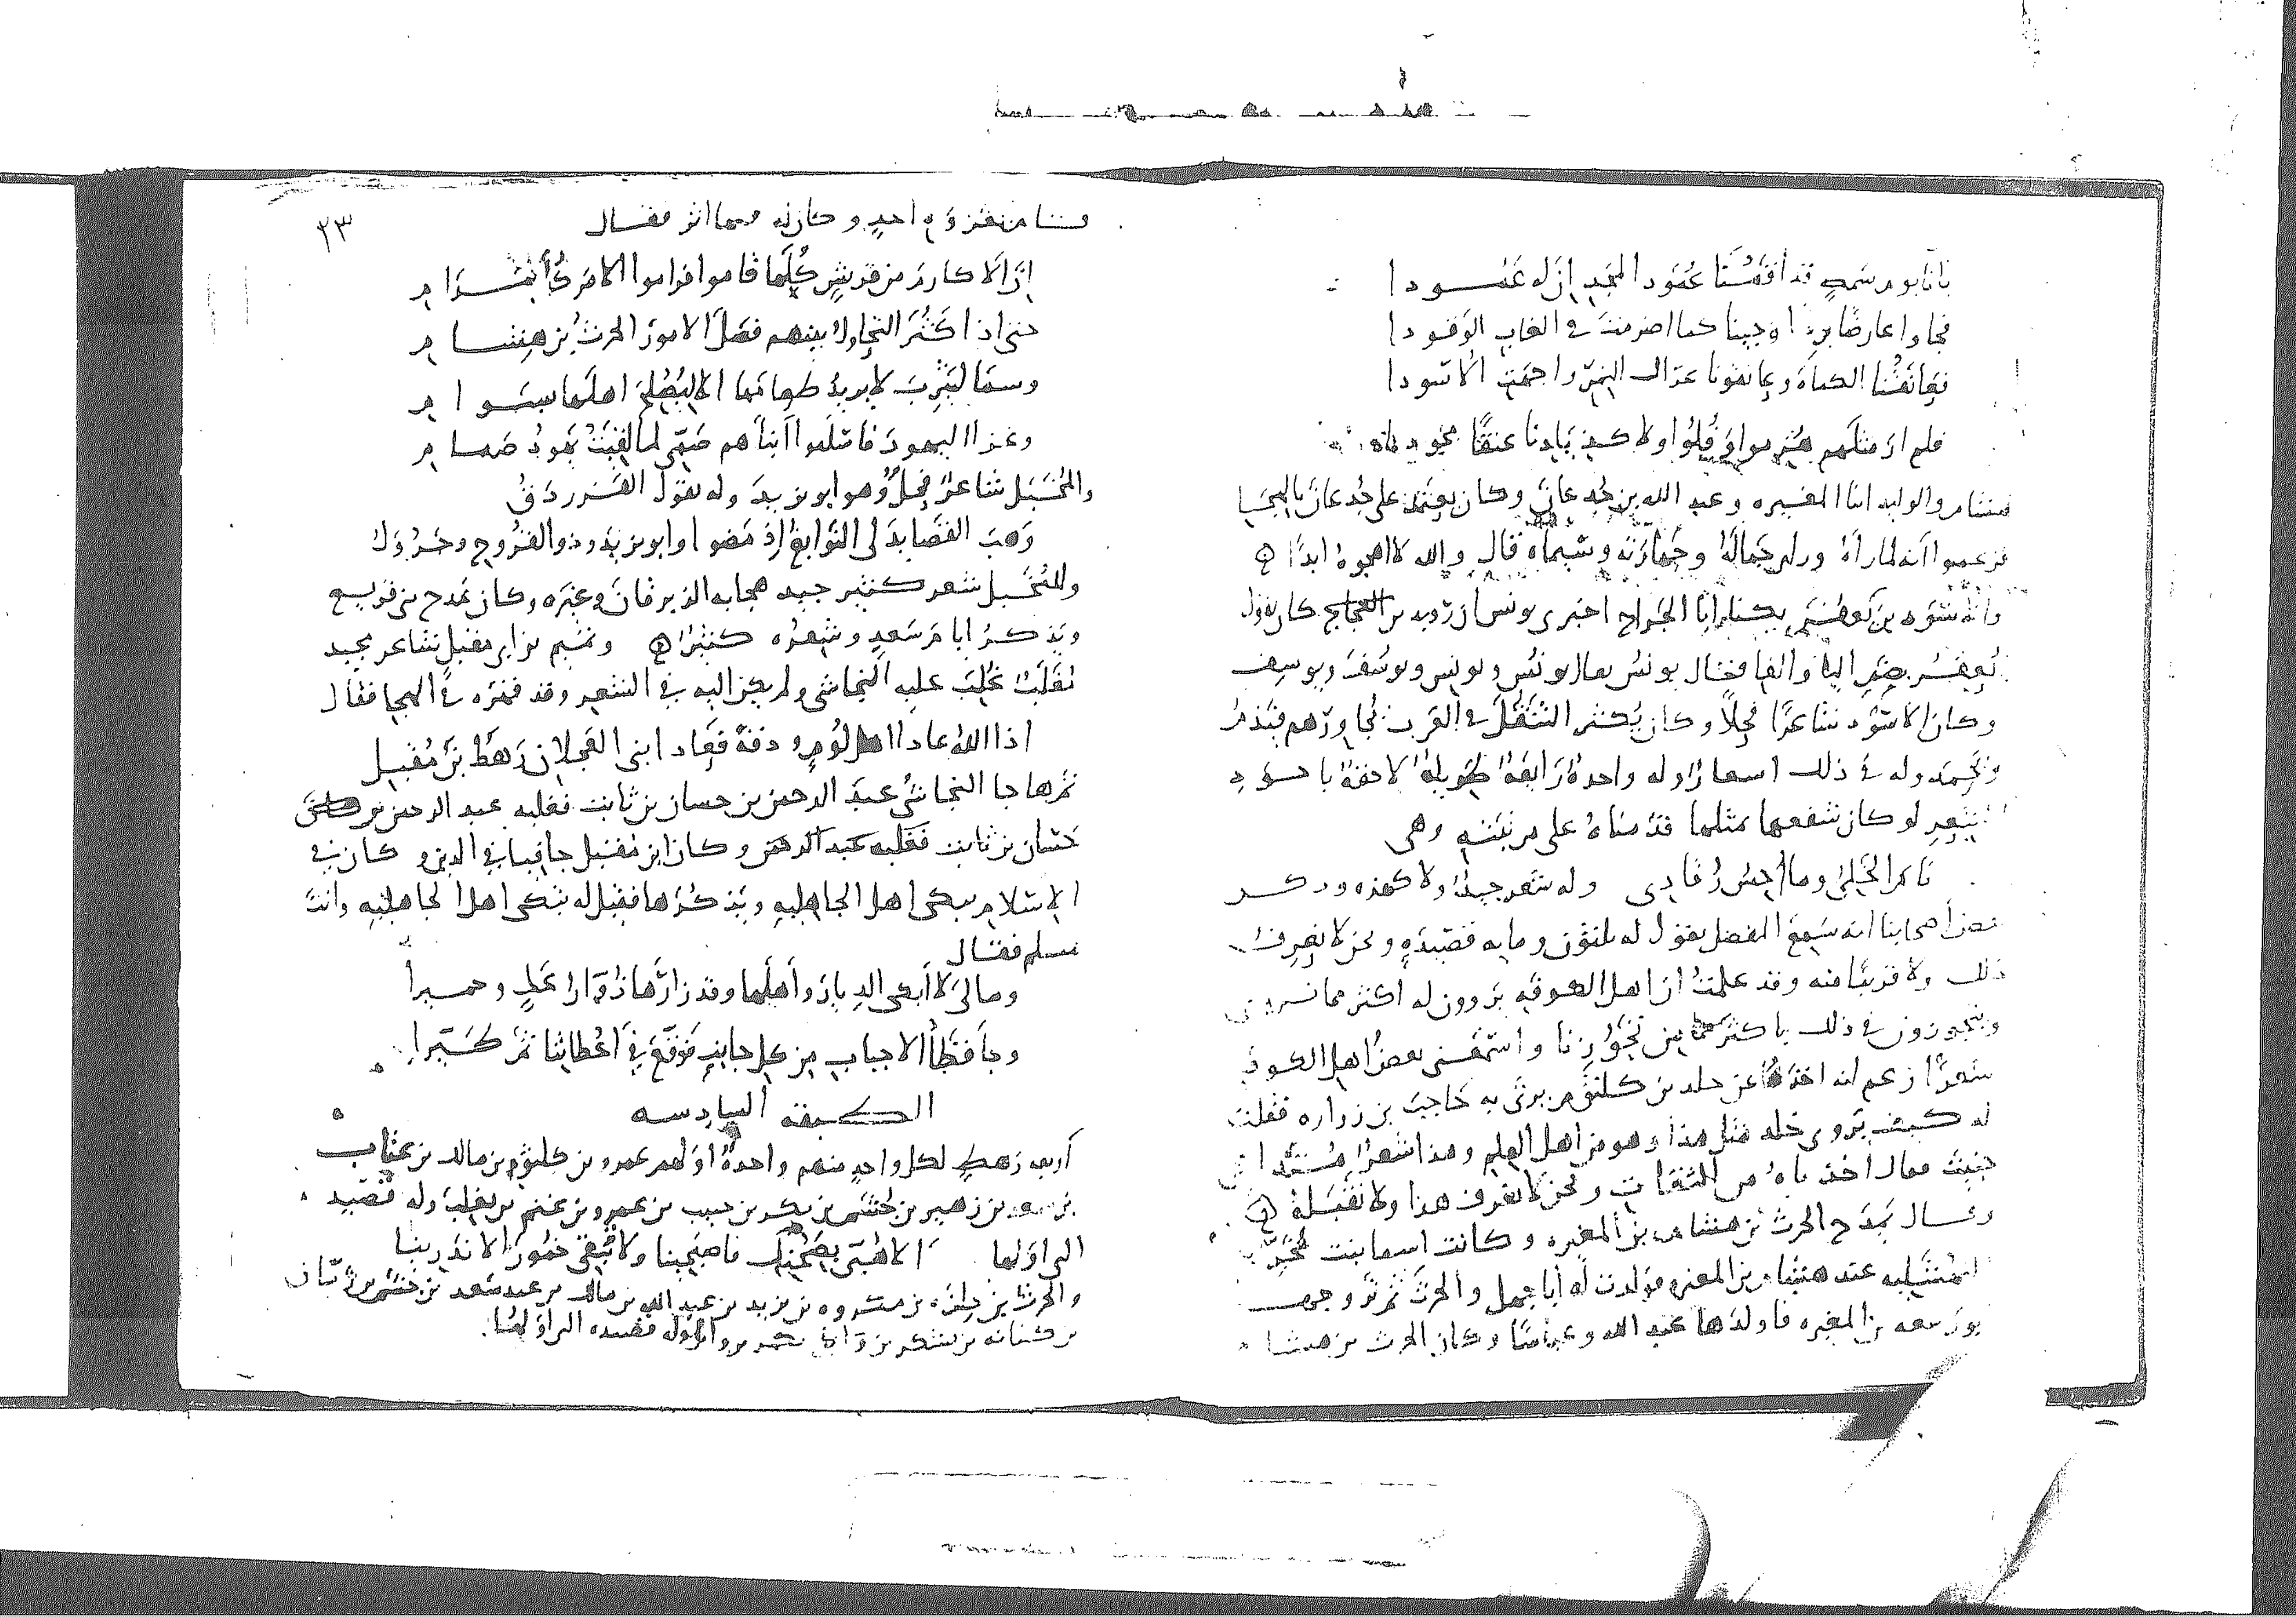 بانا يوم شمطة قد أقمنا عمود المجد إن له عمودا
فجاوا عارضا بردا وجينا كما اضرمت في الغاب الوقودا
فعانقنا الكماة وعانقونا عراك النمر واجهت الأسودا
فلم أر مثلهم هزموا وفلوا ولا كذيادنا عنقا مجودا
هشام والوليد ابنا المغيرة وعبد الله بن جدعان وكان يعتمد على جدعان بالهجا
فزعموا أنه لما رآه ورأى جماله وجهارته وسيماه قال والله لا أهجوه ابدا
والأسود بن يعفر يكنى ابا الجراح اخبرني يونس ان رؤبة بن العجاج كان يقول
يعفر بضم اليا والفا فقال يونس يقال يونس ويونس ويوسف ويوسف
وكان الاسود شاعرا فحلا وكان يكثر التنقل في العرب يجاورهم فيذم
ويحمد وله في ذلك اشعار وله واحدة رايعة طويلة لاحقة باجود
الشعر لو كان شفعها بمثلها قدمناه على مرتبته وهي
نام الخلي وما أحس رقادي وله شعر جيد ولا كهذه وذكر
بعض أصحابنا انه سمع المفضل يقول له ثلثون وماية قصيدة ونحن لا نعرف له
ذلك ولا قريبا منه وقد علمت ان اهل الكوفة يروون له اكثر مما نروي
ويتجوزون في ذلك باكثر من تجوزنا واسمعني بعض اهل الكوفة
شعرا زعم انه اخذه عن خلد بن كلثوم يرثي به حاجب بن زرارة فقلت
له كيف يروي خلد مثل هذا وهو من اهل العلم وهذا شعر
خبيث فقال أخذناه من الثقات ونحن لا نعرف هذا ولا نقبله
وقال يمدح الحرث بن هشام بن المغيرة وكانت اسما بنت مخربة
النهشلية عند هشام بن المغيرة فولدت له أبا جهل والحرث ثم تزوجها
ابو ربيعة بن المغيرة فاولدها عبد الله وعياشا وكان الحرث بن هشام
٢٣
وكان له فيها اثر فقال
إن الاكارم من قريش كلها قاموا فراموا الامر كل مرام
حتى اذا كثر التجاول بينهم فصل الامور الحرث بن هشام
وسما ليثرب لا يريد طعامها الا ليصلح اهلها بسوام
وغزا اليهود فاسلموا أبناهم صمي لما لقيت يهود صمام
والمخبل شاعر فحل وهو ابو يزيد وله يقول الفرزدق
وهب القصايد لي النوابغ إذ مضوا وابو يزيد وذو القروح وجرول
وللمخبل شعر كثير جيد هجا به الزبرقان وغيره وكان يمدح بني قريع
ويذكر ايام سعد وشعره كثير وتميم بن ابي مقبل شاعر مجيد
مغلب غلب عليه النجاشي ولم يكن اليه في الشعر وقد قهره في الهجا فقال
اذا الله عادا اهل لؤم ودقة فعاد ابني العجلان رهط بن مقبل
ثم هاجا النجاشي عبد الرحمن بن حسان بن ثابت فغلبه عبد الرحمن
حسان بن ثابت فغلبه عبد الرحمن وكان ابن مقبل جافيا في الدين وكان في
الإسلام يبكي اهل الجاهلية ويذكرها فقيل له تبكي اهل الجاهلية وانت
مسلم فقال
ومالي لا أبكي الديار وأهلها وقد زارها زوار عك وحميرا
وجا قطا الاجباب من كل جانب فوقع في أعطاننا ثم كسرا
الطبقة السادسة
أربعة رهط لكل واحد منهم واحدة اولهم عمرو بن كلثوم بن مالك بن عتاب
بن سعد بن زهير بن جشم بن بكر بن حبيب بن عمرو بن غنم بن تغلب وله قصيدة
التي اولها ألا هبي بصحنك فاصبحينا ولا تبقي خمور الاندرينا
والحرث بن حلزة بن مكروه بن يزيد بن عبد الله بن مالك بن عبد سعد بن جشم بن ذبيان
بن كنانة بن يشكر بن بكر بن وائل وله قصيدة التي أولها